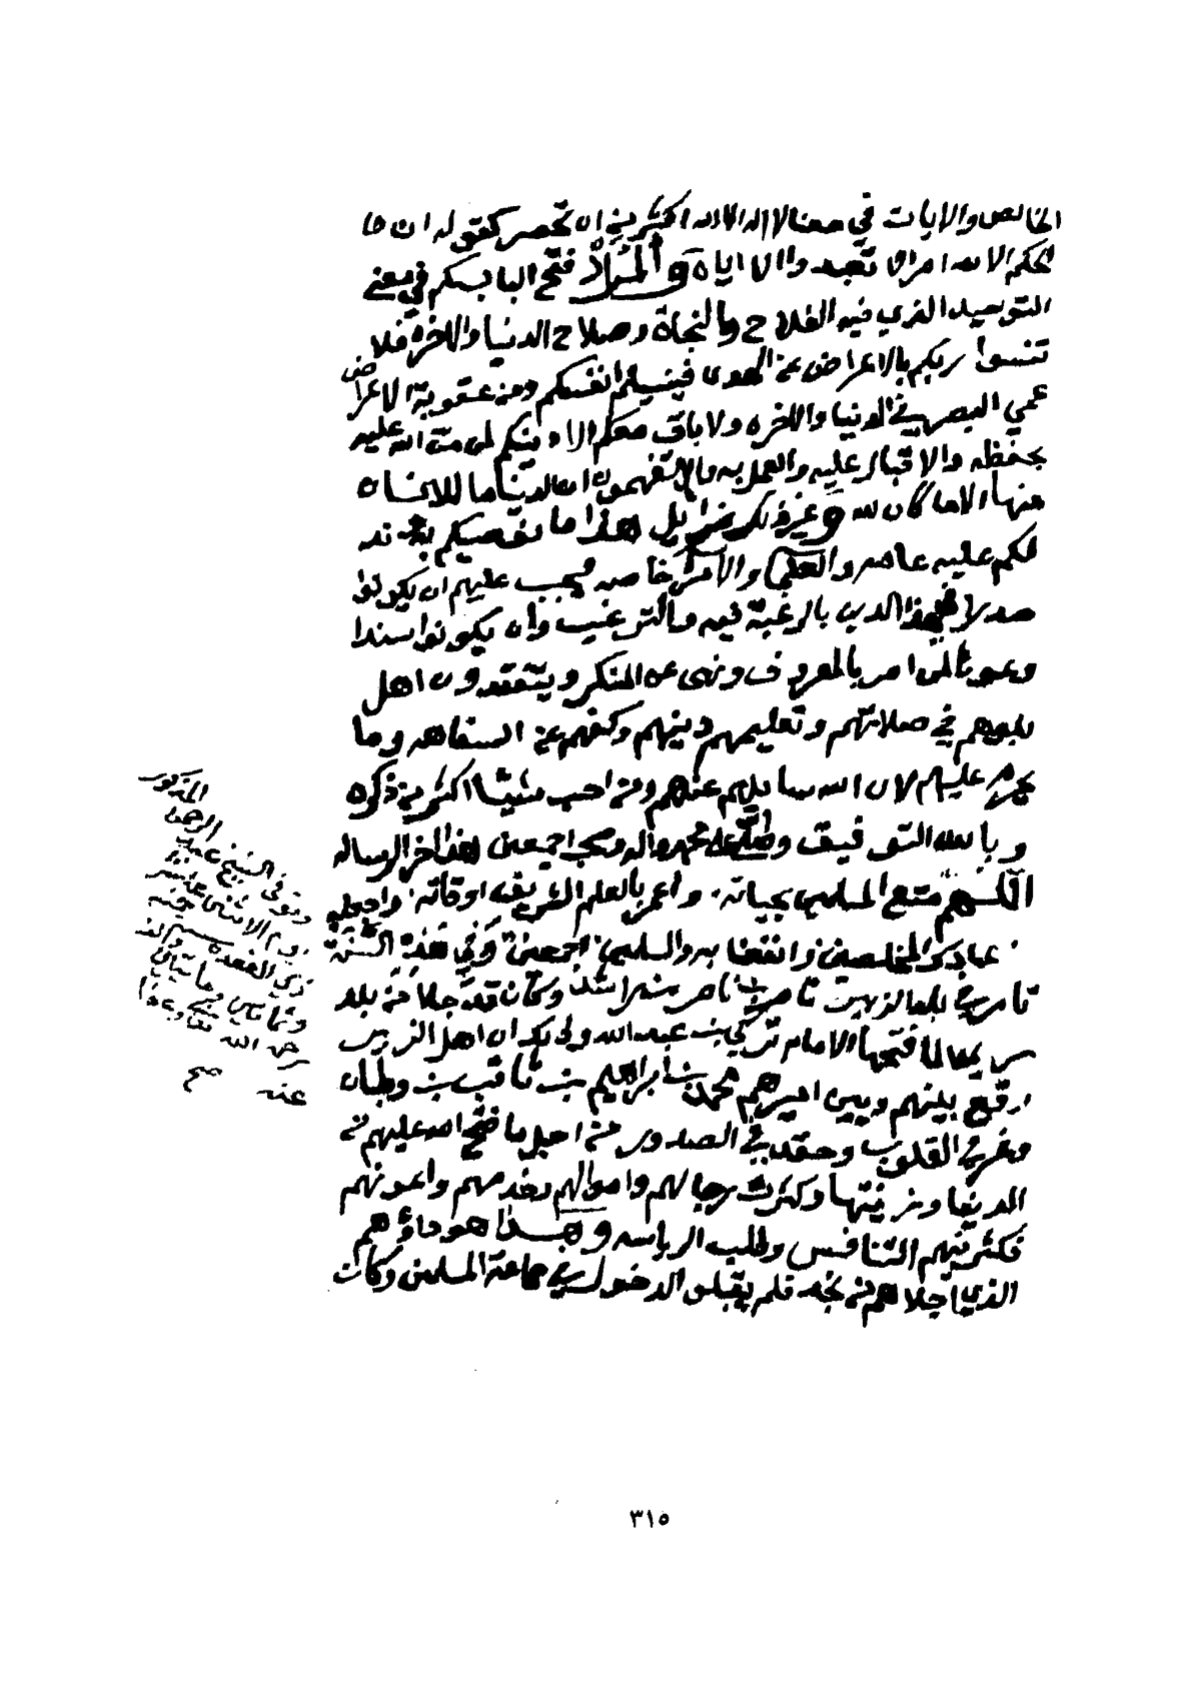 الخالص والايات في معنا لا اله الا الله اكثر من ان تحصر كقوله ان
الحكم الا لله امر الا تعبدوا الا اياه والمراد فتح الباب لكم في معنى
التوحيد الذي فيه الفلاح والنجاة وصلاح الدنيا والاخره فلا
تنسوا ربكم بالاعراض عن الهدى فينسيكم انفسكم ومن عقوبة الاعراض
عمي البصيره في الدنيا والاخره ولا باق معكم الا دينكم لمن من الله عليه
بحفظه والاقبال عليه والعمل به وانتم تفهمون ان الدنيا ما للانسان
منها الا ما كان لله وغير ذلك زايل هذا ما نوصيكم به وندلكم
لكم عليه عامه والعلما والامرا خاصه فيجب عليهم ان يكونوا
صدرا في هذا الدين بالرغبة فيه والترغيب وان يكونوا سندا
وعونا لمن امر بالمعروف ونهى عن المنكر ويتفقدون اهل
بلدهم في صلاتهم وتعليمهم دينهم وكفهم عن السفاهه وما
يحرم عليهم لان الله سايلهم عنهم ومن احب شيئا اكثر من ذكره
وبالله التوفيق وصلى الله على محمد واله وصحبه اجمعين هذا اخر الرساله
اللهم متع المسلمين بحياته واعمر بالعلم الشريف اوقاته واجعله من
عبادك المخلصين وانفعنا به والمسلمين اجمعين وفي هذه السنة
ثامر في بلد الزبير ناصر بن راشد وكان قد جلا من بلد
حريملا لما فتحها الامام تركي بن عبد الله وذلك ان اهل الزبير
وقع بينهم وبين اميرهم محمد بن ابراهيم بن ثاقب بن وطبان
وغر في القلوب وحقد في الصدور من اجل ما فتح الله عليهم من
الدنيا وزينتها وكثرت رجالهم واموالهم وخدمهم واعوانهم
فكثر فيهم التنافس وطلب الرياسه وهذا هو داؤهم
الذي اجلاهم من نجد فلم يقبلو الدخول في جماعة المسلمين وكان
المذكور
وتوفي الشيخ عبد الرحمن
يوم الاثنين عاشر
ذي القعده سنة خمسه
وثمانين ومايتين والف
رحمه الله تعالى وعفا
عنه صح
٣١٥